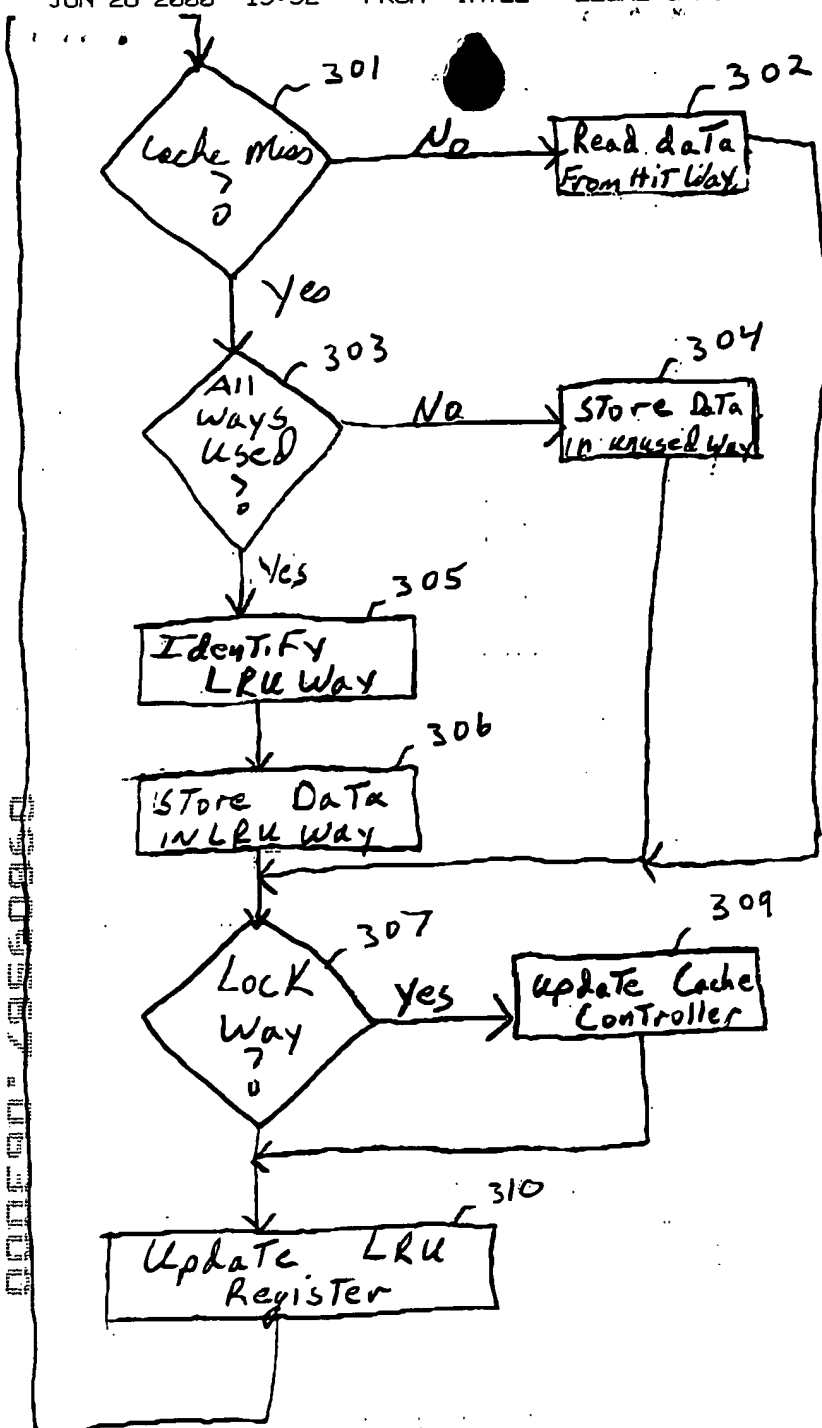 301
Cache Miss
?
No
302
Read data
From Hit Way
Yes
303
All
Ways
Used
?
No
304
Store Data
in unused Way
Yes
305
Identify
LRU Way
306
Store Data
IN LRU Way
307
Lock
Way
?
Yes
309
Update Cache
Controller
310
Update LRU
Register